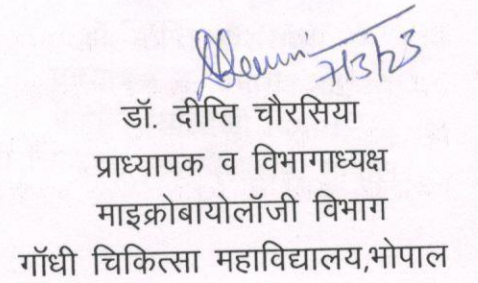 7/3/23
डॉ. दीप्ति चौरसिया
प्राध्यापक व विभागाध्यक्ष
माइक्रोबायोलॉजी विभाग
गॉधी चिकित्सा महाविद्यालय,भोपाल